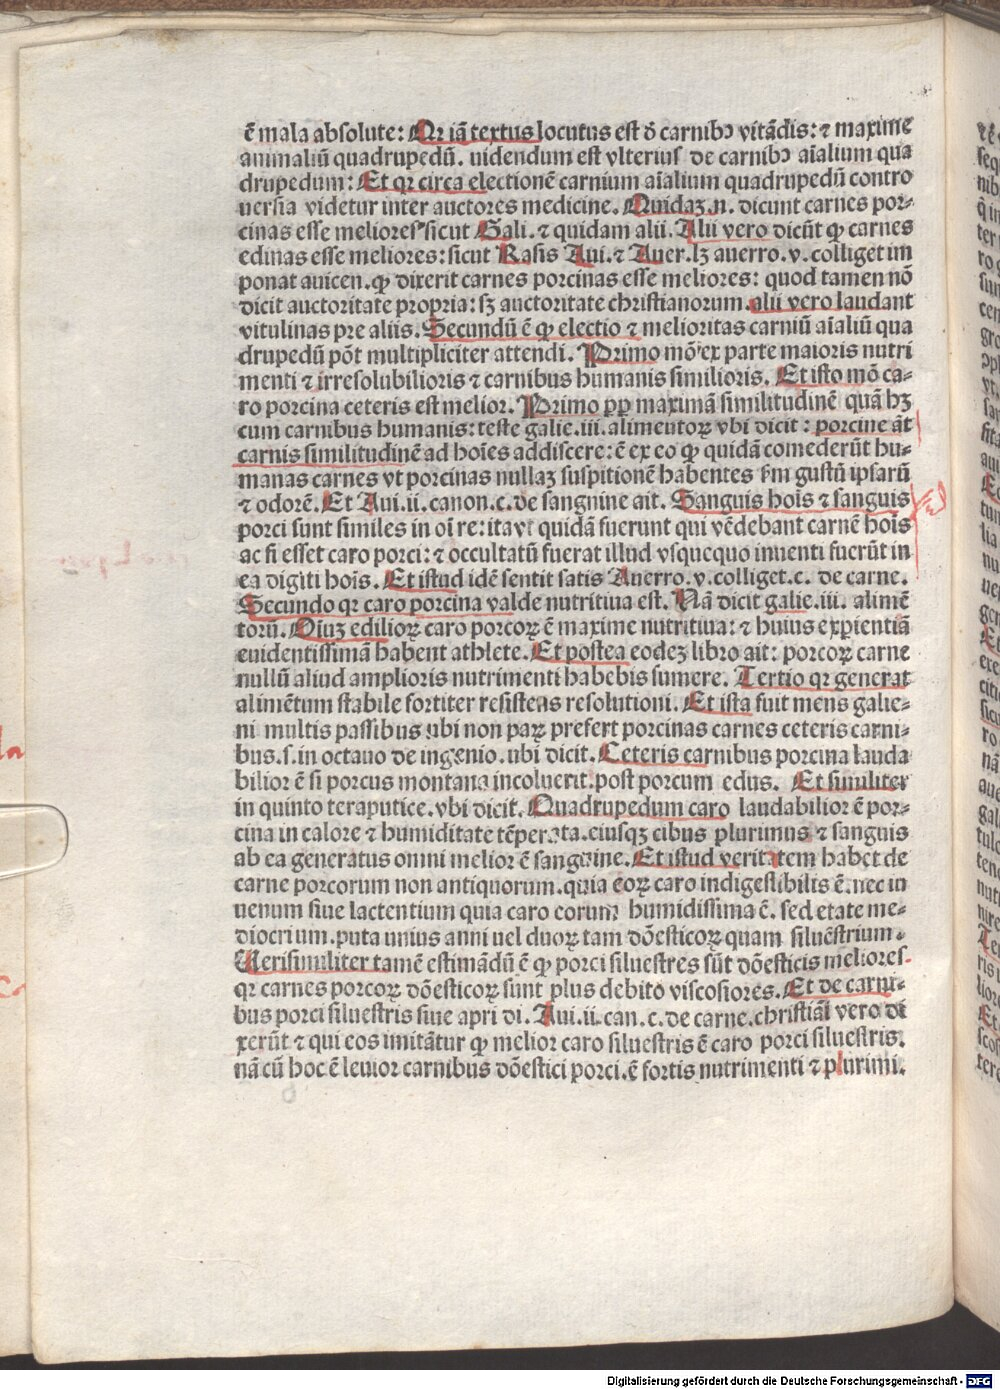 ē mala absolute: Qꝛ iā textus locutus est ꝺ̄ carnibꝰ vitādis: ⁊ maxime
animaliū quadrupedū. uidendum est vlterius de carnibꝰ aīalium qua
drupedum: Et qꝛ circa electionē carnium aīalium quadrupedū contro
uersia videtur inter auctores medicine. Quidaꝫ.n. dicunt carnes por⸗
cinas esse meliores sicut Gali. ⁊ quidam alii. Alii vero dicūt ꝙ carnes
edinas esse meliores: sicut Rasis Aui. ⁊ Auer. lꝫ auerro. v. colliget im
ponat auicen. ꝙ dixerit carnes porcinas esse meliores: quod tamen nō
dicit auctoritate propria: sꝫ auctoritate christianorum. alii vero laudant
vitulinas pre aliis. Secundū ē ꝙ electio ⁊ melioritas carniū aīaliū qua
drupedū pōt multipliciter attendi. Primo mō ex parte maioris nutri
menti ⁊ irresolubilioris ⁊ carnibus humanis similioris. Et isto mō ca⸗
ro porcina ceteris est melior. Primo ꝓp̄ maximā similitudinē quā hꝫ
cum carnibus humanis: teste galie. iii. alimentoꝝ vbi dicit: porcine āt
carnis similitudinē ad hoīes addiscere: ē ex eo ꝙ quidā comederūt hu⸗
manas carnes vt porcinas nullaꝫ suspitionē habentes ẜm gustū ipsarū
⁊ odorē. Et Aui. ii. canon. c. de sanguine ait. Sanguis hoīs ⁊ sanguis
porci sunt similes in oī re: ita vt quidā fuerunt qui vēdebant carnē hoīs
ac si esset caro porci: ⁊ occultatū fuerat illud vsquequo inuenti fuerūt in
ea digiti hoīs. Et istud idē sentit satis Auerro. v. colliget. c. de carne.
Secundo qꝛ caro porcina valde nutritiua est. Nā dicit galie. iii. alimē
torū. Oiuꝫ ediliorꝝ caro porcoꝝ ē maxime nutritiua: ⁊ huius experientiā
euidentissimā habent athlete. Et postea eodeꝫ libro ait: porcoꝝ carne
nullū aliud amplioris nutrimenti habebis sumere. Tertio qꝛ generat
alimētum stabile fortiter resistens resolutioni. Et ista fuit mens galie⸗
ni multis passibus ubi non paꝝ prefert porcinas carnes ceteris carni⸗
bus. s. in octauo de ingenio. ubi dicit. Ceteris carnibus porcina lauda
bilior ē si porcus montana incoluerit. post porcum edus. Et similiter
in quinto teraputice. vbi dicit. Quadrupedum caro laudabilior ē por⸗
cina in calore ⁊ humiditate tēperata. eiusqꝫ cibus plurimus ⁊ sanguis
ab ea generatus omni melior ē sanguine. Et istud veritatem habet de
carne porcorum non antiquorum. quia eoꝝ caro indigestibilis ē. nec iu
uenum siue lactentium quia caro eorum humidissima ē. sed etate me⸗
diocrium. puta unius anni uel duoꝝ tam dōesticoꝝ quam siluēstrium.
Uerisimiliter tamē estimādū ē ꝙ porci siluestres sūt dōesticis meliores.
qꝛ carnes porcoꝝ dōesticoꝝ sunt plus debito viscosiores. Et de carni⸗
bus porci siluestris siue apri di. Aui. ii. can. c. de carne. christiāi vero di
xerūt ⁊ qui eos imitātur ꝙ melior caro siluestris ē caro porci siluestris.
nā cū hoc ē leuior carnibus dōestici porci. ē fortis nutrimenti ⁊ plurimi.
Digitalisierung gefördert durch die Deutsche Forschungsgemeinschaft - DFG